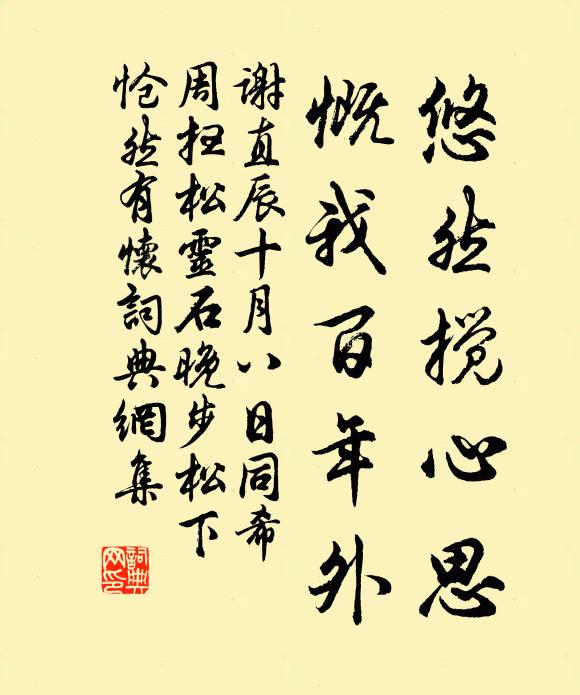 悠然搅心思
慨我百年外
谢直辰十月八日同希
周扫松靈石晚步松下
怆然有懷詞典網集
詞典
网印